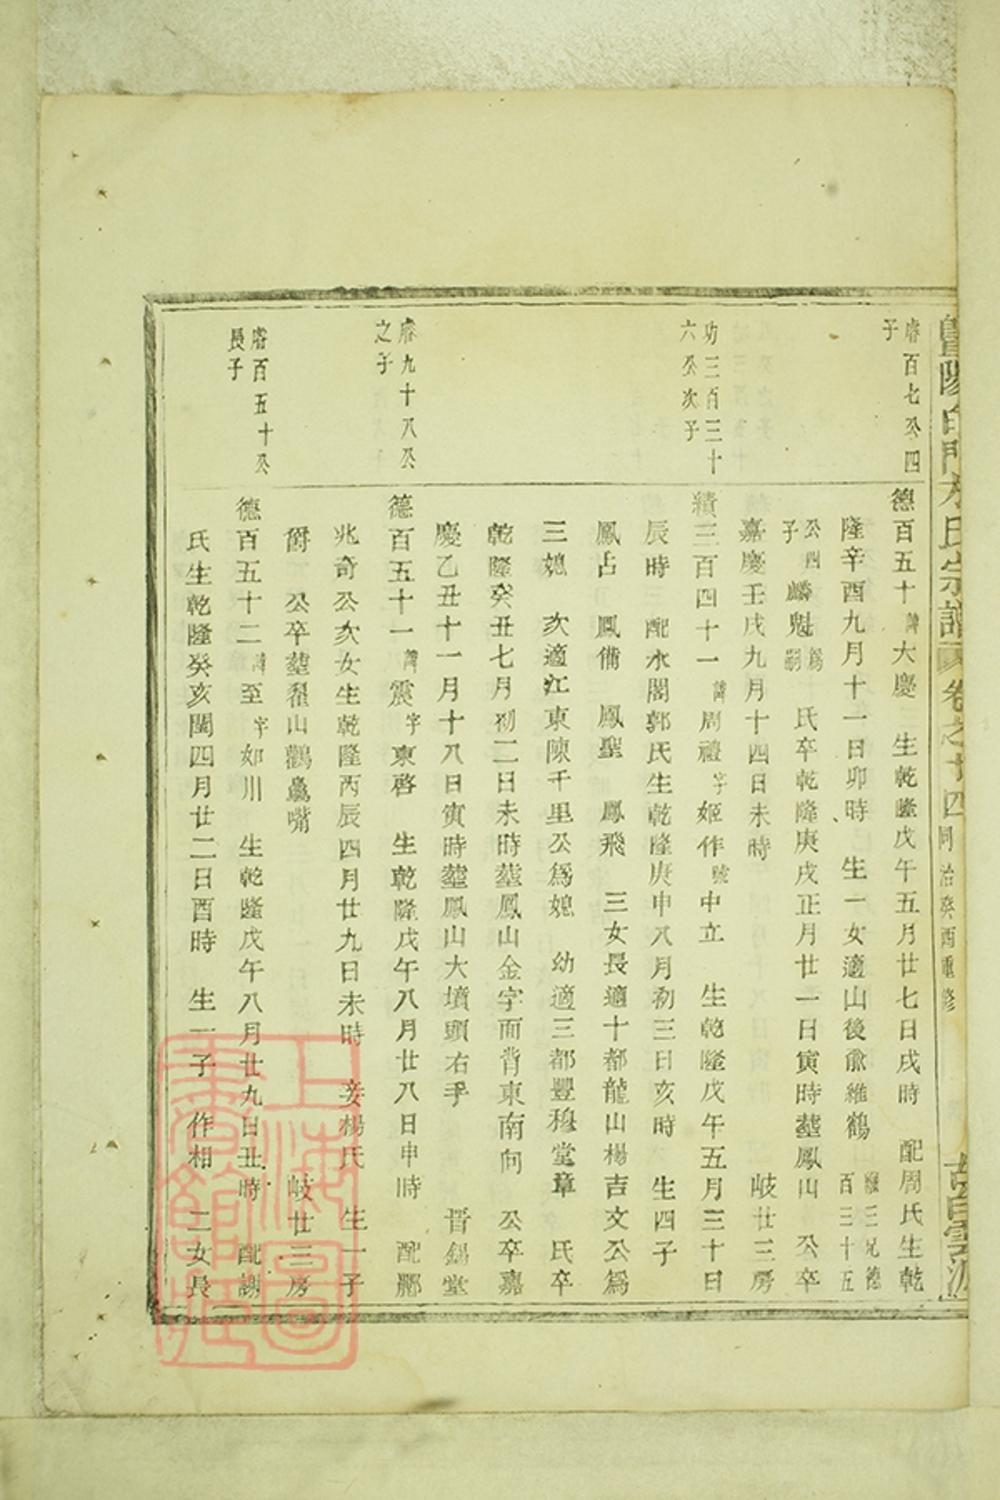 暨陽白門方氏宗譜 卷之十四 同治癸酉重修
睿百七公四
子
德百五十諱大慶 生乾隆戊午五月廿七日戌時 配周氏生乾
隆辛酉九月十一日卯時 生一女適山後俞維鶴 繼三兄德百三十五
公四子麟魁為嗣 氏卒乾隆庚戌正月廿一日寅時塟鳳山 公卒
嘉慶壬戌九月十四日未時 岐廿三房
功三百三十
六公次子
績三百四十一諱周禮字姬作號中立 生乾隆戊午五月三十日
辰時 配水閣郭氏生乾隆庚申八月初三日亥時 生四子
鳳占 鳳備 鳳聖 鳳飛 三女長適十都龍山楊吉文公為
三媳 次適江東陳千里公為媳 幼適三都豐穆堂章 氏卒
乾隆癸丑七月初二日未時塟鳳山金字面背東南向 公卒嘉
慶乙丑十一月十八日寅時塟鳳山大墳頭右手 晋錫堂
睿九十八公
之子
德百五十一諱震字東啓 生乾隆戊午八月廿八日申時 配酈
兆奇公次女生乾隆丙辰四月廿九日未時 妾楊氏 生一子
爵 公卒塟 山鸛 嘴 岐廿三房
睿百五十公
長子
德百五十二諱至字如川 生乾隆戊午八月廿九日丑時 配謝
氏生乾隆癸亥閏四月廿二日酉時 生一子 作相 二女長
上海圖書館藏